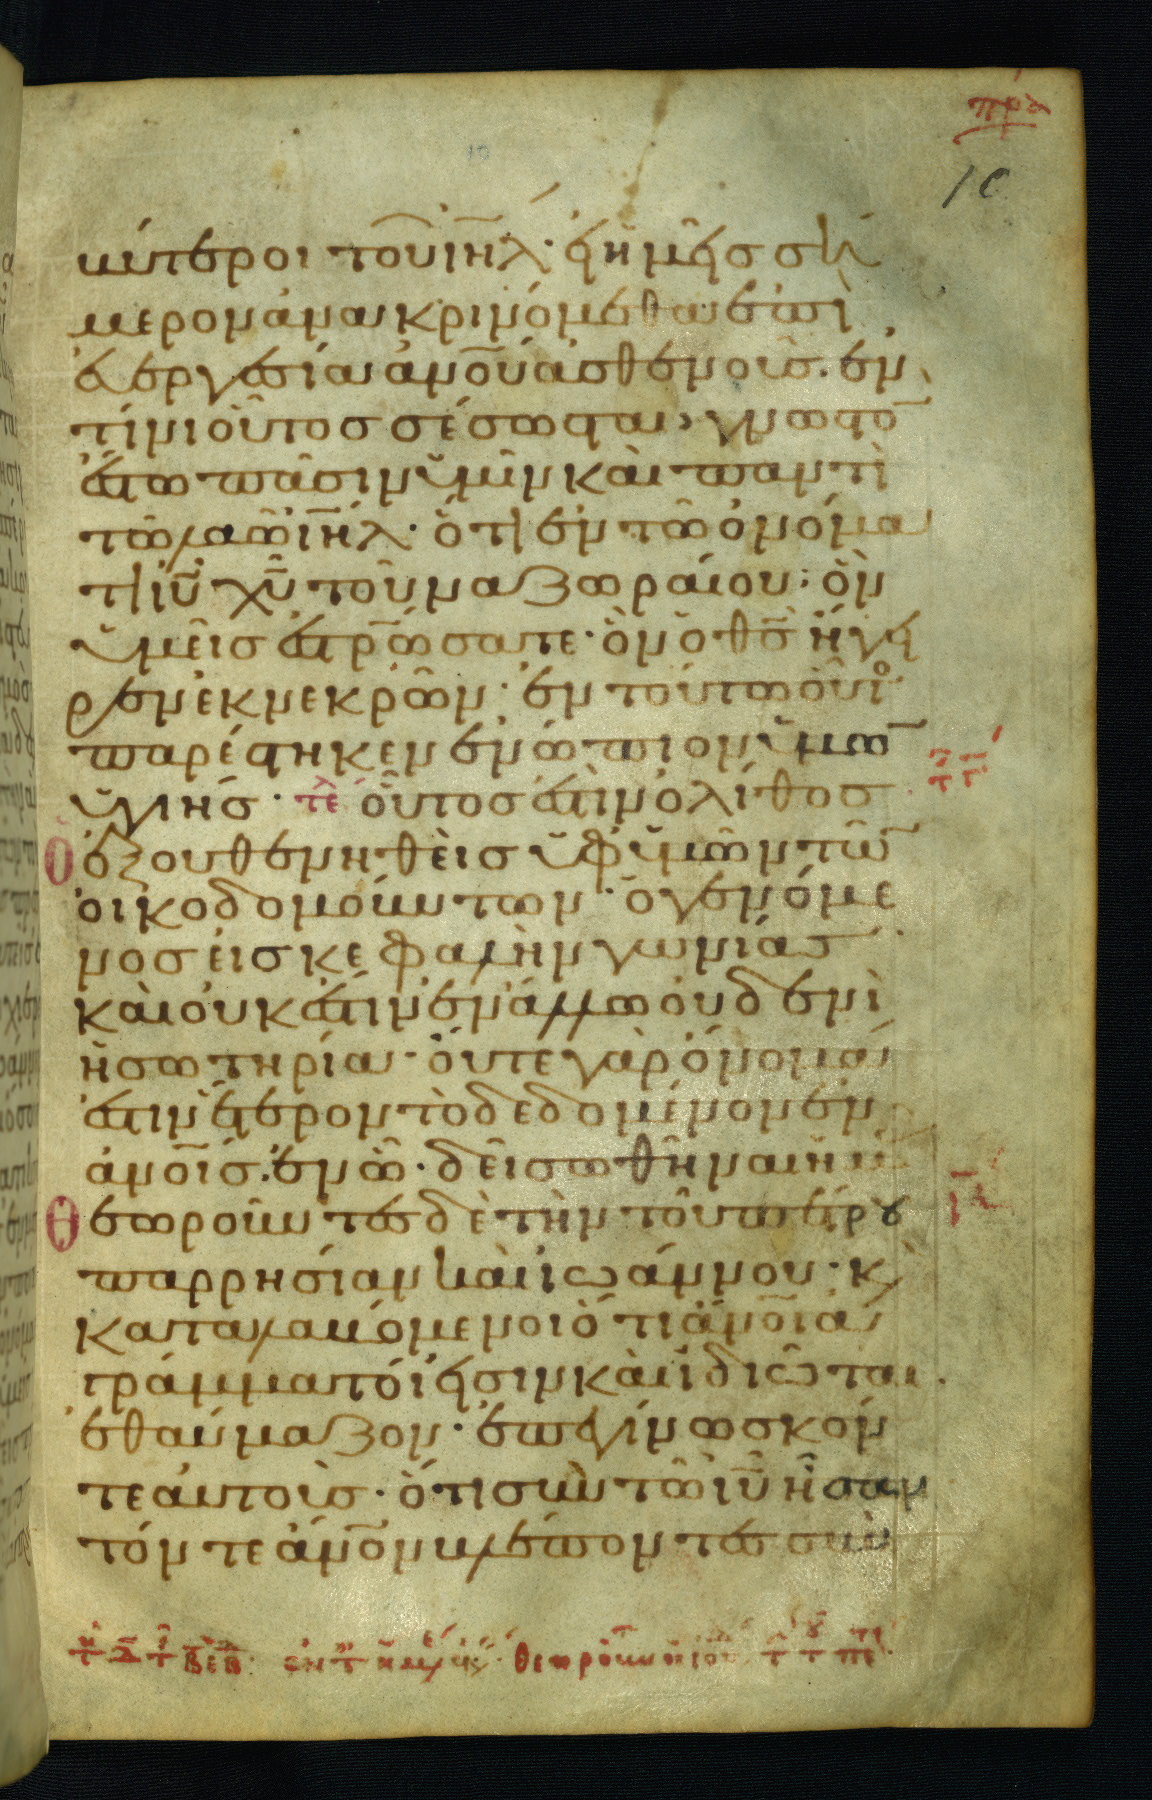 πρα
10
βύτεροι τοῦ ιηλ· εἰ ἡμεῖς σή
μερον ἀνακρινόμεθα ἐπὶ
εὐεργεσία ἀνου ἀσθενοῦς· ἐν
τίνι οὗτος σέσωσται· γνωστὸ
ἔστω πᾶσιν ὑμῖν καὶ παντὶ
τῶ λαῶ ιηλ· ὅτι ἐν τῶ ὀνόμα
τι ιυ χυ τοῦ ναζωραίου· ὃν
ὑμεῖς ἐστρώσατε· ὃν ὁ θς ἤγει
ρεν ἐκ νεκρῶν· ἐν τούτω οὗτο
παρέστηκεν ἐνώπιον ὑμῶ
ὑγιής· τε οὗτος ἐστὶν ὁ λίθος
ὁ ἐξουθενηθεὶς ὑφ' ὑμῶν τῶ
οἰκοδομούντων· ὁ γενόμε
νος εἰς κεφαλὴν γωνίας
καὶ οὐκ ἔστιν ἐν ἄλλω οὐδενὶ
ἡ σωτηρία· οὔτε γὰρ ὄνομά
ἐστιν ἕτερον τὸ δεδομένον ἐν
ἀνοις· ἐν ὧ δεῖ σωθῆναι ἡμ
Θεωροῦντες δὲ τὴν τοῦ πέτρου
παρρησίαν καὶ ἰωάννου· κ
καταλαβόμενοι ὅτι ἀνοι ἀ
γράμματοί εἰσιν καὶ ἰδιῶται·
ἐθαύμαζον· ἐπεγίνωσκόν
τε αὐτοὺς· ὅτι σὺν τῶ ιυ ἦσαν
τόν τε ἀνον βλέποντες σὺν